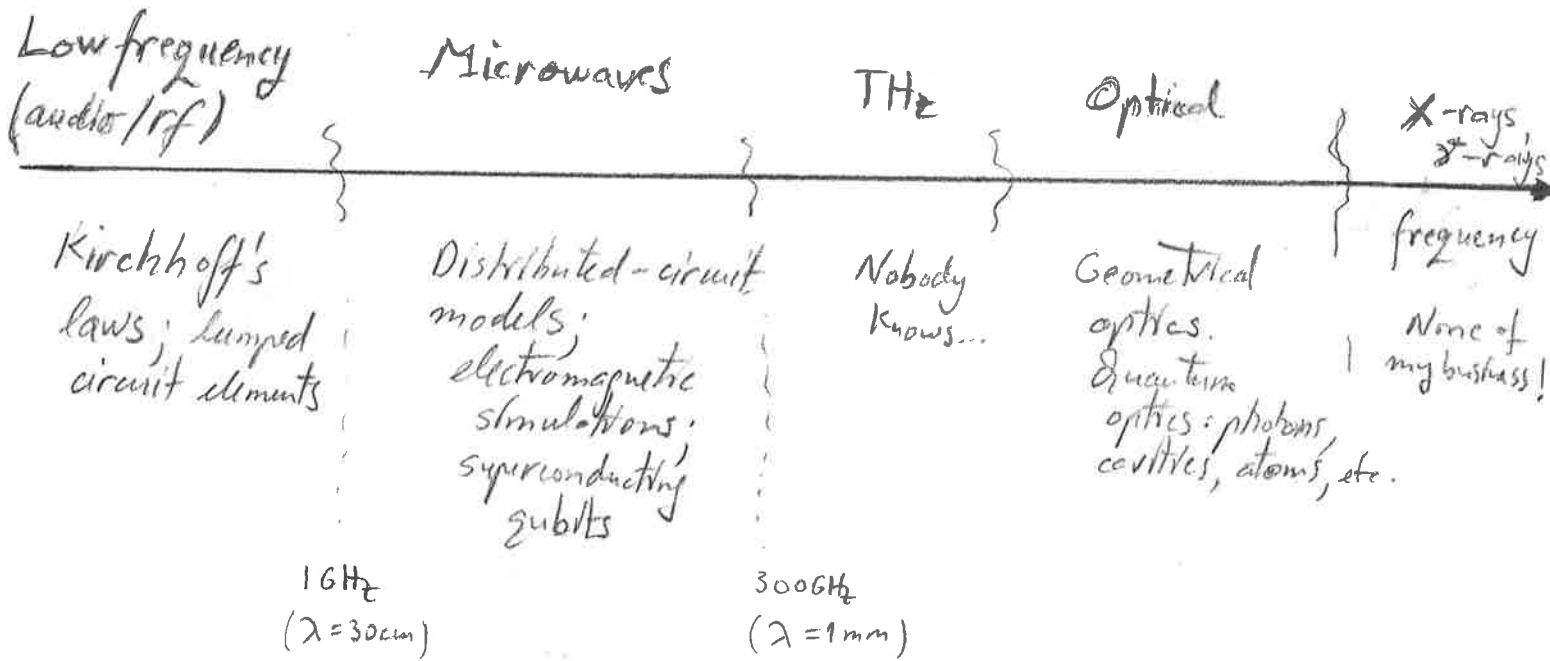 Low frequency
(audio/rf)
Microwaves
THz
Optical
X-rays,
γ-rays
frequency
Kirchhoff's
laws; lumped
circuit elements
Distributed-circuit
models;
electromagnetic
simulations;
superconducting
qubits
Nobody
knows...
Geometrical
optics.
Quantum
optics: photons,
cavities, atoms, etc.
None of
my business!
1 GHz
(λ = 30cm)
300GHz
(λ = 1mm)